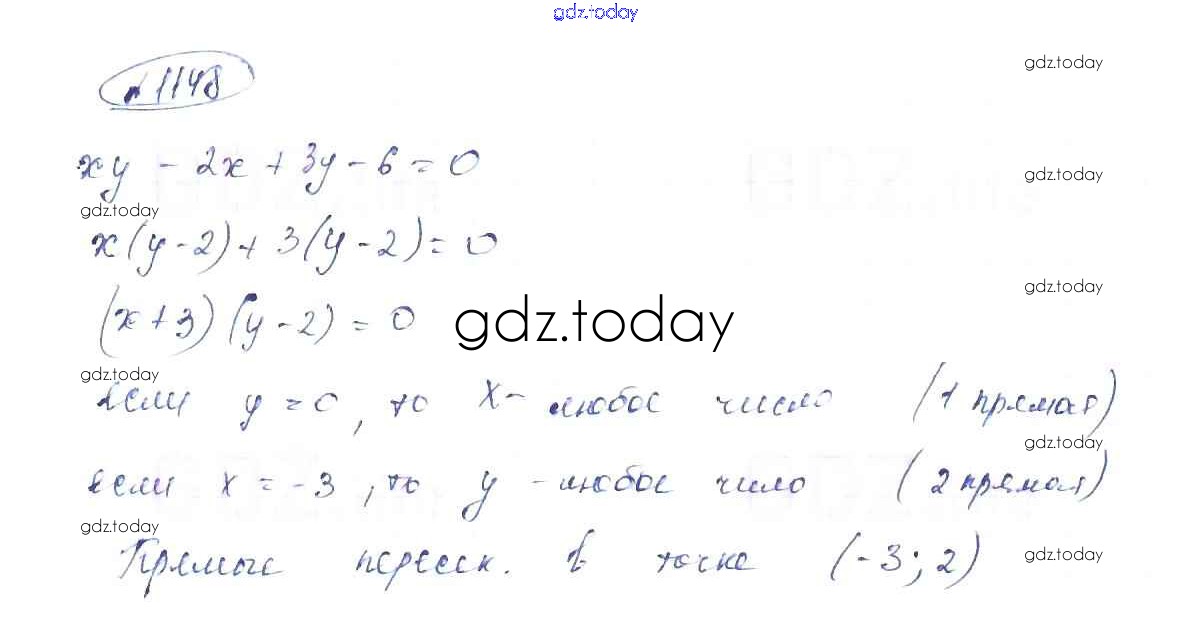 gdz.today
gdz.today
№ 1148
xy - 2x + 3y - 6 = 0
gdz.today
gdz.today
x(y-2) + 3(y-2) = 0
gdz.today
(x+3)(y-2) = 0
gdz.today
gdz.today
если y = 0, то x - любое число (1 прямая)
gdz.today
если x = -3, то y - любое число (2 прямая)
gdz.today
Прямые пересек. в точке (-3; 2)
gdz.today